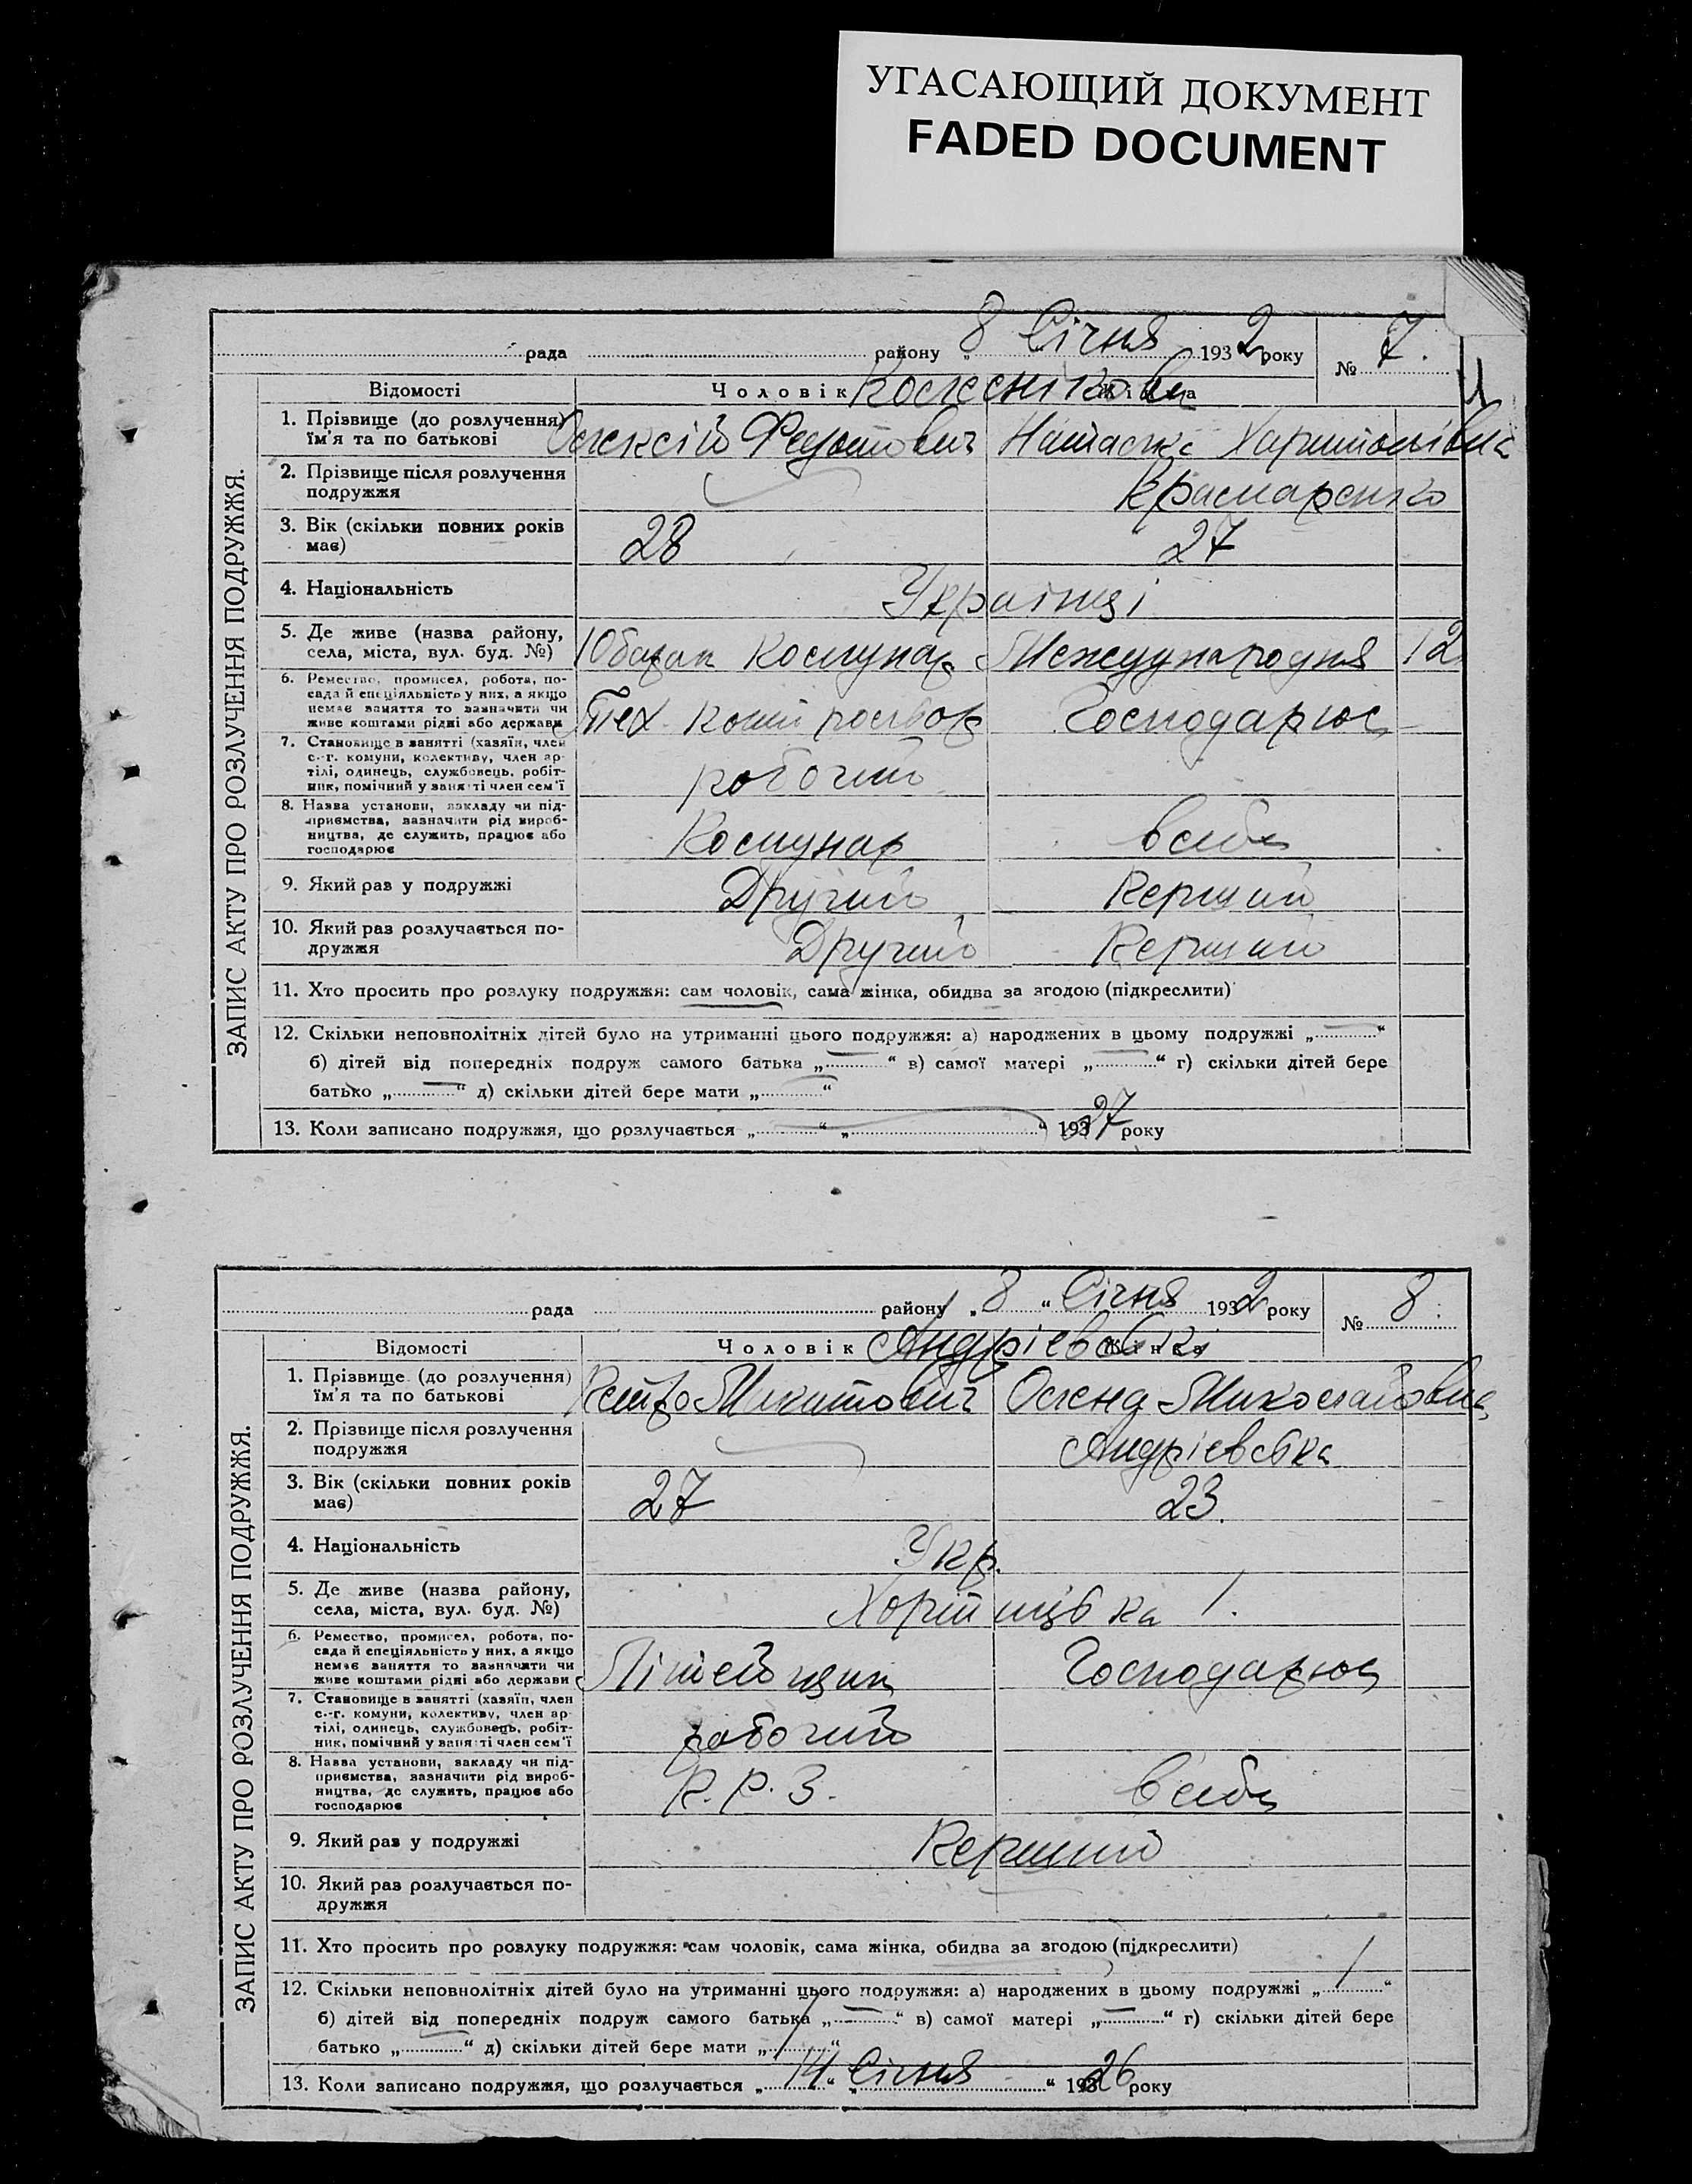 УГАСАЮЩИЙ ДОКУМЕНТ
FADED DOCUMENT
рада району „ 8 Січня 1932 року № 7.
Відомості Чоловік Жінка
1. Прізвище (до розлучення) їм'я та по батькові
Олексій Федотович Наталка Харитонівна
2. Прізвище після розлучення подружжя
Крамаренко
3. Вік (скільки повних років має)
28 27
4. Національність
Українці
5. Де живе (назва району, села, міста, вул. буд. №)
Комунар Международня 12
6. Ремество, промисел, робота, посада й спеціяльність у них, а якщо немає заняття то зазначити чи живе коштами рідні або держави
Тех. Господарює
7. Становище в занятті (хазяїн, член с.-г. комуни, колективу, член артілі, одинець, службовець, робітник, помічний у занятті член сем'ї
робочий
8. Назва установи, закладу чи підприємства, зазначити рід виробництва, де служить, працює або господарює
Комунар всебе
9. Який раз у подружжі
Другий Перший
10. Який раз розлучається подружжя
Другий Перший
11. Хто просить про розлуку подружжя: сам чоловік, сама жінка, обидва за згодою (підкреслити)
12. Скільки неповнолітніх дітей було на утриманні цього подружжя: а) народжених в цьому подружжі „ — “
б) дітей від попередніх подруж самого батька „ — “ в) самої матері „ — “ г) скільки дітей бере
батько „ — “ д) скільки дітей бере мати „ — “
13. Коли записано подружжя, що розлучається „ “ „ “ 1927 року
ЗАПИС АКТУ ПРО РОЗЛУЧЕННЯ ПОДРУЖЖЯ.
рада району „ 8 “ Січня 1932 року № 8.
Відомості Чоловік Андрієвські Жінка
1. Прізвище (до розлучення) їм'я та по батькові
Петро Микитович Олена Миколаївна
2. Прізвище після розлучення подружжя
Андрієвська
3. Вік (скільки повних років має)
27 23.
4. Національність
Укр.
5. Де живе (назва району, села, міста, вул. буд. №)
Хортицька 1.
6. Ремество, промисел, робота, посада й спеціяльність у них, а якщо немає заняття то зазначити чи живе коштами рідні або держави
Літейщик Господарює
7. Становище в занятті (хазяїн, член с.-г. комуни, колективу, член артілі, одинець, службовець, робітник, помічний у занятті член сем'ї
робочий
8. Назва установи, закладу чи підприємства, зазначити рід виробництва, де служить, працює або господарює
П.Р.З. всебе
9. Який раз у подружжі
Перший
10. Який раз розлучається подружжя
11. Хто просить про розлуку подружжя: сам чоловік, сама жінка, обидва за згодою (підкреслити)
12. Скільки неповнолітніх дітей було на утриманні цього подружжя: а) народжених в цьому подружжі „ 1 “
б) дітей від попередніх подруж самого батька „ — “ в) самої матері „ — “ г) скільки дітей бере
батько „ — “ д) скільки дітей бере мати „ 1 “
13. Коли записано подружжя, що розлучається „ 14 “ „ Січня “ 1926 року
ЗАПИС АКТУ ПРО РОЗЛУЧЕННЯ ПОДРУЖЖЯ.